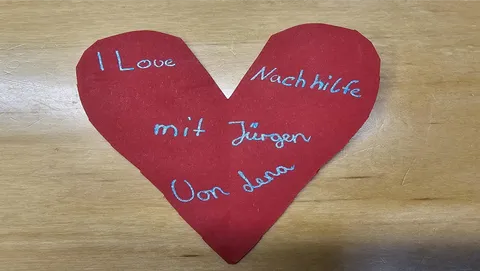 I Love
Nachhilfe
mit Jürgen
Von Lena